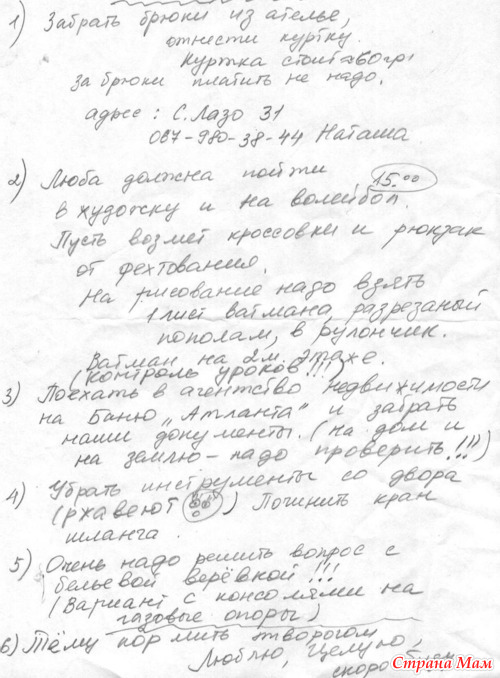 1) Забрать брюки из ателье,
отнести куртку.
Куртка стоит ≈60гр,
За брюки платить не надо.
адрес: С. Лазо 31
067-980-38-44 Наташа
2) Люба должна пойти 15.00
в художку и на волейбол.
Пусть возмет кроссовки и рюкзак
от фехтования.
На рисование надо взять
1 лист ватмана разрезаный
пополам, в рулончик.
Ватман на 2м этаже.
(контроль уроков!!!)
3) Поехать в агентство недвижимости
на Баню „Атланта" и забрать
наши документы. (на дом и
на землю-надо проверить!!!)
4) Убрать инструменты со двора
(ржавеют) Починить кран
шланга.
5) Очень надо решить вопрос с
бельевой верёвкой!!!
(Вариант с консолями на
газовые опоры)
6) Тёму кормить творогом
Люблю, Целую,
скоро буду!!
Страна Мам